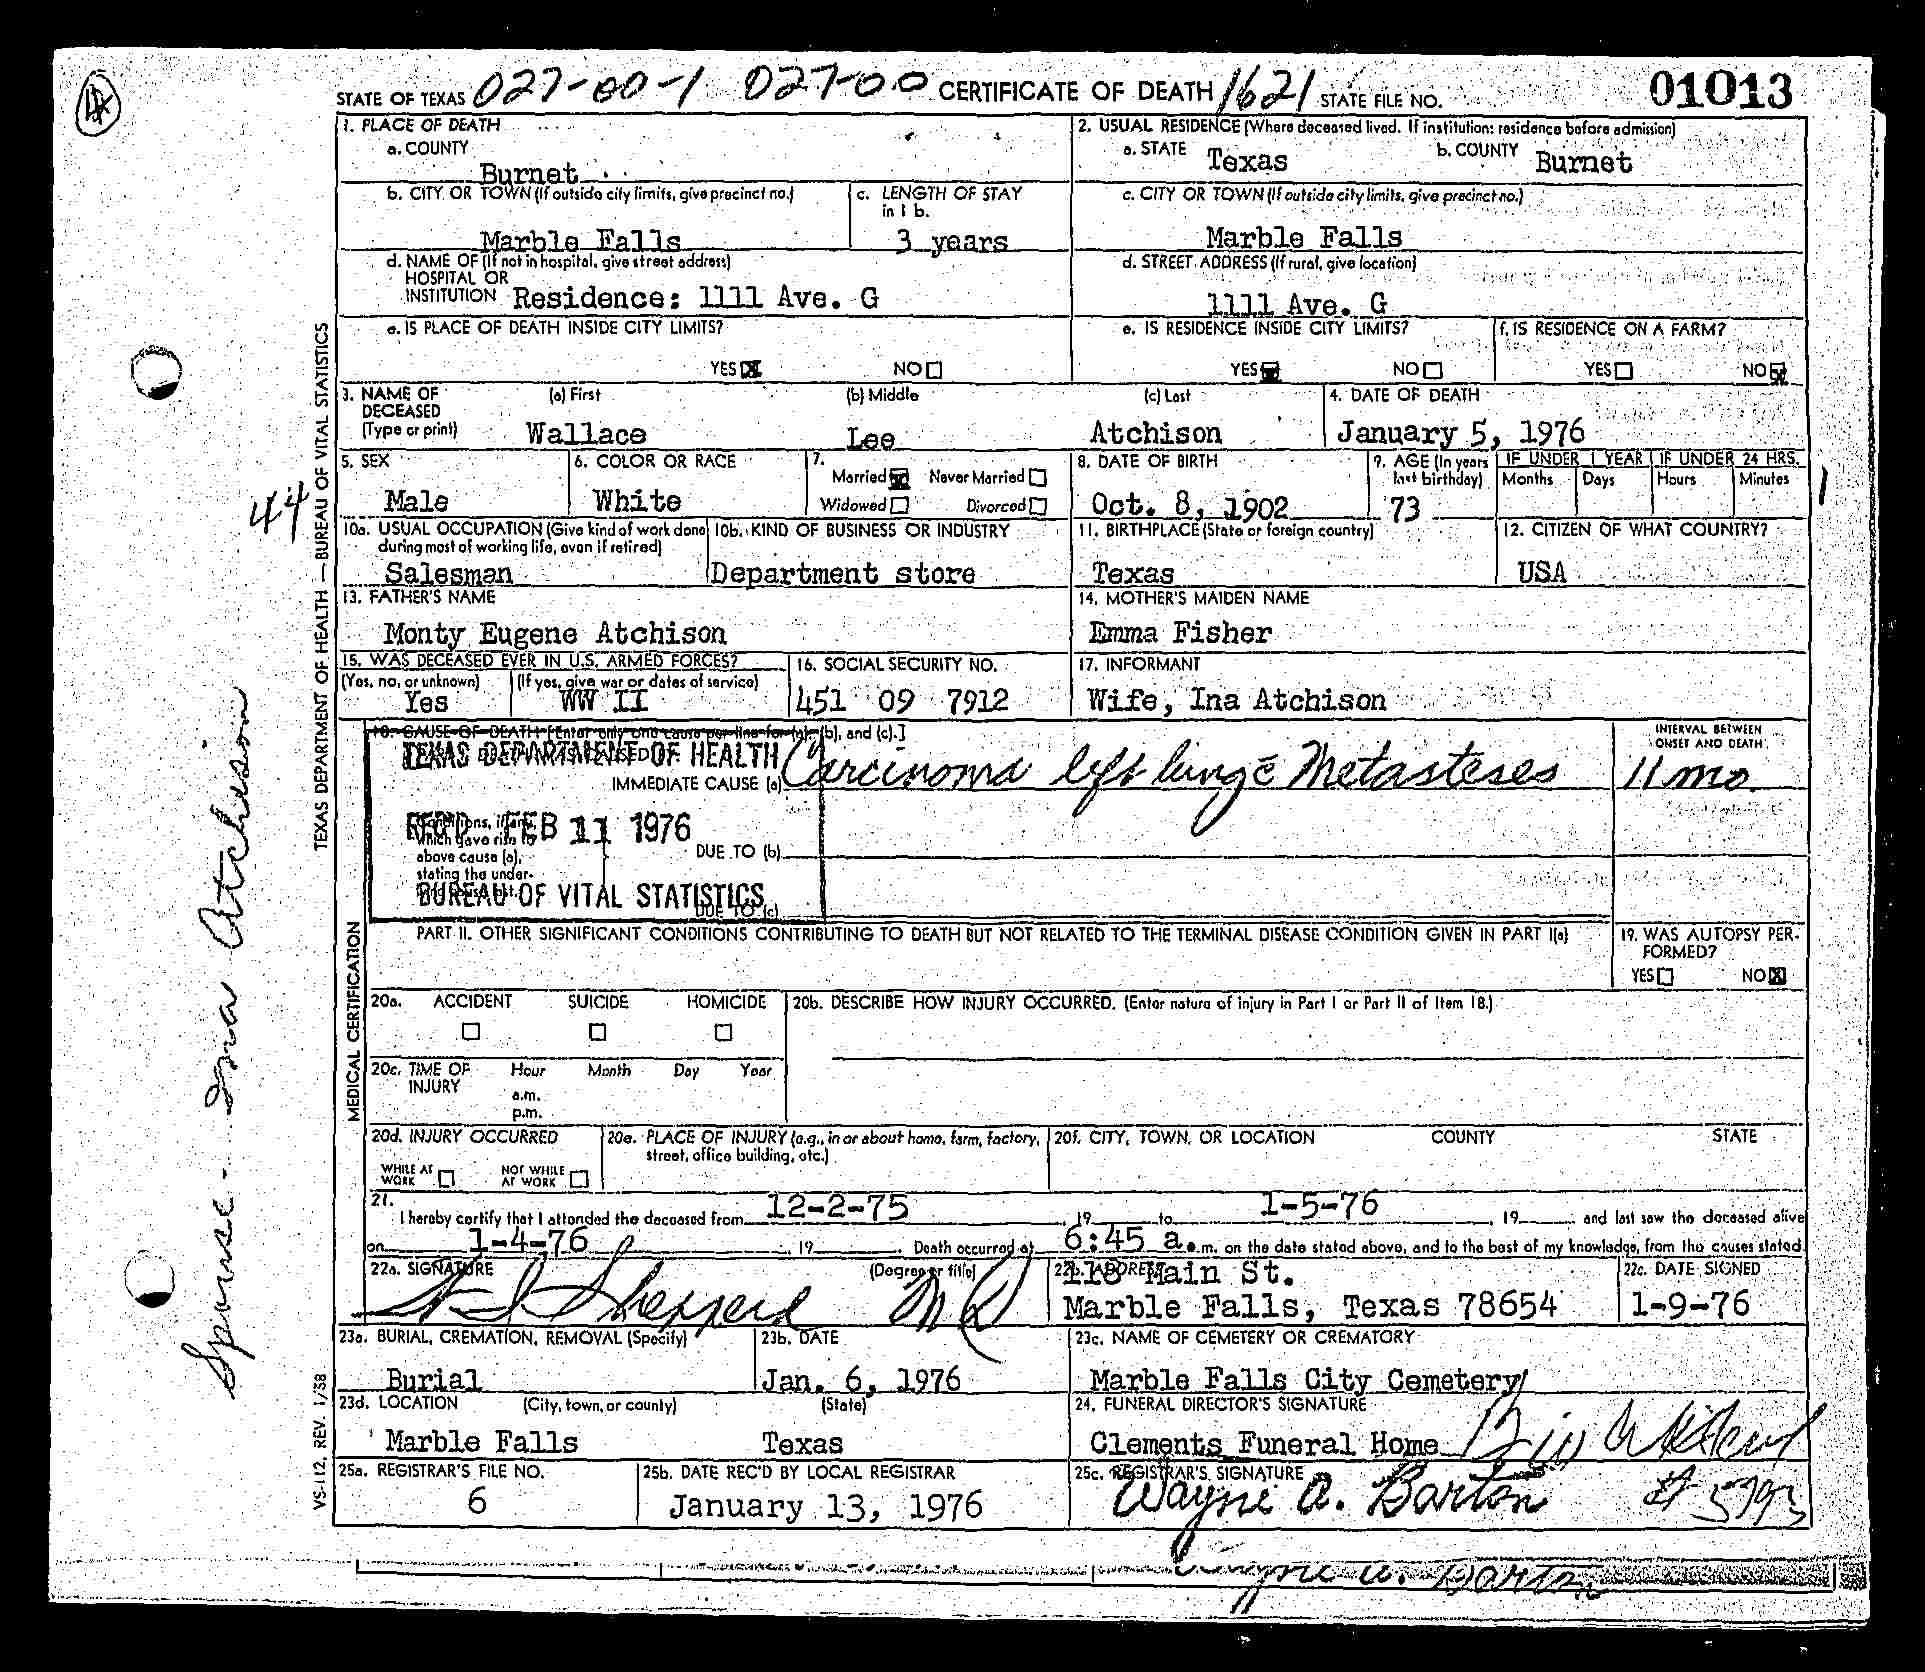 STATE OF TEXAS 027-00-1 027-00 CERTIFICATE OF DEATH 1621 STATE FILE NO. 01013
1. PLACE OF DEATH
a. COUNTY
Burnet
2. USUAL RESIDENCE (Where deceased lived. If institution: residence before admission)
a. STATE Texas b. COUNTY Burnet
b. CITY OR TOWN (If outside city limits, give precinct no.)
Marble Falls
c. LENGTH OF STAY
in 1 b.
3 years
c. CITY OR TOWN (If outside city limits, give precinct no.)
Marble Falls
d. NAME OF (If not in hospital, give street address)
HOSPITAL OR
INSTITUTION Residence: 1111 Ave. G
d. STREET ADDRESS (If rural, give location)
1111 Ave. G
e. IS PLACE OF DEATH INSIDE CITY LIMITS?
YES NO
e. IS RESIDENCE INSIDE CITY LIMITS?
YES NO
f. IS RESIDENCE ON A FARM?
YES NO
3. NAME OF
DECEASED
(Type or print)
(a) First (b) Middle (c) Last
Wallace Lee Atchison
4. DATE OF DEATH
January 5, 1976
5. SEX
Male
6. COLOR OR RACE
White
7.
Married Never Married
Widowed Divorced
8. DATE OF BIRTH
Oct. 8, 1902
9. AGE (In years
last birthday)
73
IF UNDER 1 YEAR IF UNDER 24 HRS.
Months Days Hours Minutes
10a. USUAL OCCUPATION (Give kind of work done
during most of working life, even if retired)
Salesman
10b. KIND OF BUSINESS OR INDUSTRY
Department store
11. BIRTHPLACE (State or foreign country)
Texas
12. CITIZEN OF WHAT COUNTRY?
USA
13. FATHER'S NAME
Monty Eugene Atchison
14. MOTHER'S MAIDEN NAME
Emma Fisher
15. WAS DECEASED EVER IN U.S. ARMED FORCES?
(Yes, no, or unknown) (If yes, give war or dates of service)
Yes WW II
16. SOCIAL SECURITY NO.
451 09 7912
17. INFORMANT
Wife, Ina Atchison
18. CAUSE OF DEATH [Enter only one cause per line for (a), (b), and (c).]
TEXAS DEPARTMENT OF HEALTH
IMMEDIATE CAUSE (a) Carcinoma left lung c̄ Metasteses
INTERVAL BETWEEN
ONSET AND DEATH
11 mo.
REC'D FEB 11 1976
which gave rise to
above cause (a),
stating the under-
DUE TO (b)
BUREAU OF VITAL STATISTICS
DUE TO (c)
PART II. OTHER SIGNIFICANT CONDITIONS CONTRIBUTING TO DEATH BUT NOT RELATED TO THE TERMINAL DISEASE CONDITION GIVEN IN PART I(a)
19. WAS AUTOPSY PER-
FORMED?
YES NO
20a. ACCIDENT SUICIDE HOMICIDE
20b. DESCRIBE HOW INJURY OCCURRED. (Enter nature of injury in Part I or Part II of Item 18.)
20c. TIME OF
INJURY
Hour Month Day Year
a.m.
p.m.
20d. INJURY OCCURRED
WHILE AT
WORK
NOT WHILE
AT WORK
20e. PLACE OF INJURY (e.g., in or about home, farm, factory,
street, office building, etc.)
20f. CITY, TOWN, OR LOCATION COUNTY STATE
21.
I hereby certify that I attended the deceased from 12-2-75, 19 to 1-5-76, 19 and last saw the deceased alive
on 1-4-76, 19. Death occurred at 6:45 a.m. on the date stated above, and to the best of my knowledge, from the causes stated.
22a. SIGNATURE (Degree or title)
Shepperd MD
22b. ADDRESS
118 Main St.
Marble Falls, Texas 78654
22c. DATE SIGNED
1-9-76
23a. BURIAL, CREMATION, REMOVAL (Specify)
Burial
23b. DATE
Jan. 6, 1976
23c. NAME OF CEMETERY OR CREMATORY
Marble Falls City Cemetery
23d. LOCATION (City, town, or county) (State)
Marble Falls Texas
24. FUNERAL DIRECTOR'S SIGNATURE
Clements Funeral Home
25a. REGISTRAR'S FILE NO.
6
25b. DATE REC'D BY LOCAL REGISTRAR
January 13, 1976
25c. REGISTRAR'S SIGNATURE
Wayne A. Barton # 5793
Wayne A. Barton
TEXAS DEPARTMENT OF HEALTH — BUREAU OF VITAL STATISTICS
MEDICAL CERTIFICATION
VS-112, REV. 1/58
44
Spouse - Ina Atchison